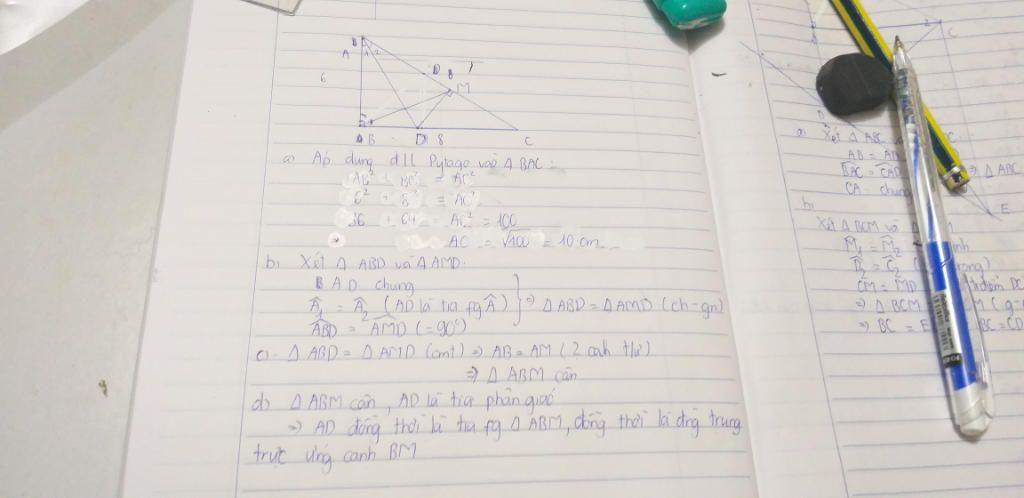 A
6
1 2
D
M
B
D 8
C
a) Áp dụng đll Pytago vào Δ BAC :
AB² + BC² = AC²
6² + 8² = AC²
36 + 64 = AC² = 100
⇒ AC = √100 = 10 cm
b) Xét Δ ABD và Δ AMD:
AD chung
Â₁ = Â₂ (AD là tia fg Â) ⇒ Δ ABD = Δ AMD (ch - gn)
ABD = AMD (= 90°)
c) Δ ABD = Δ AMD (cmt) ⇒ AB = AM (2 cạnh t/ư)
⇒ Δ ABM cân
d) Δ ABM cân, AD là tia phân giác
⇒ AD đồng thời là tia fg Δ ABM, đồng thời là đng trung
trực ứng cạnh BM
2
C
E
a) Xét Δ ABC
AB = AD
BAC = CAD ⇒ Δ ABC
CA chung
b)
Xét Δ BCM và
M₁ = M₂
= C₂
CM = MD DC
⇒ Δ BCM
⇒ BC = E BC = CD